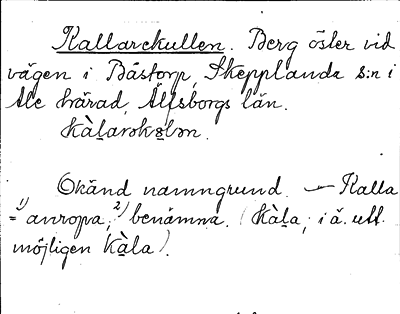 Kallarekullen. Berg öster vid
vägen i Båstorp, Skepplanda s:n i
Ale härad, Älfsborgs län.
kàlarəkələn.
Okänd namngrund. — Kalla
= 1) anropa, 2) benämna. (Kàla, i ä. utt.
möjligen Kàla).